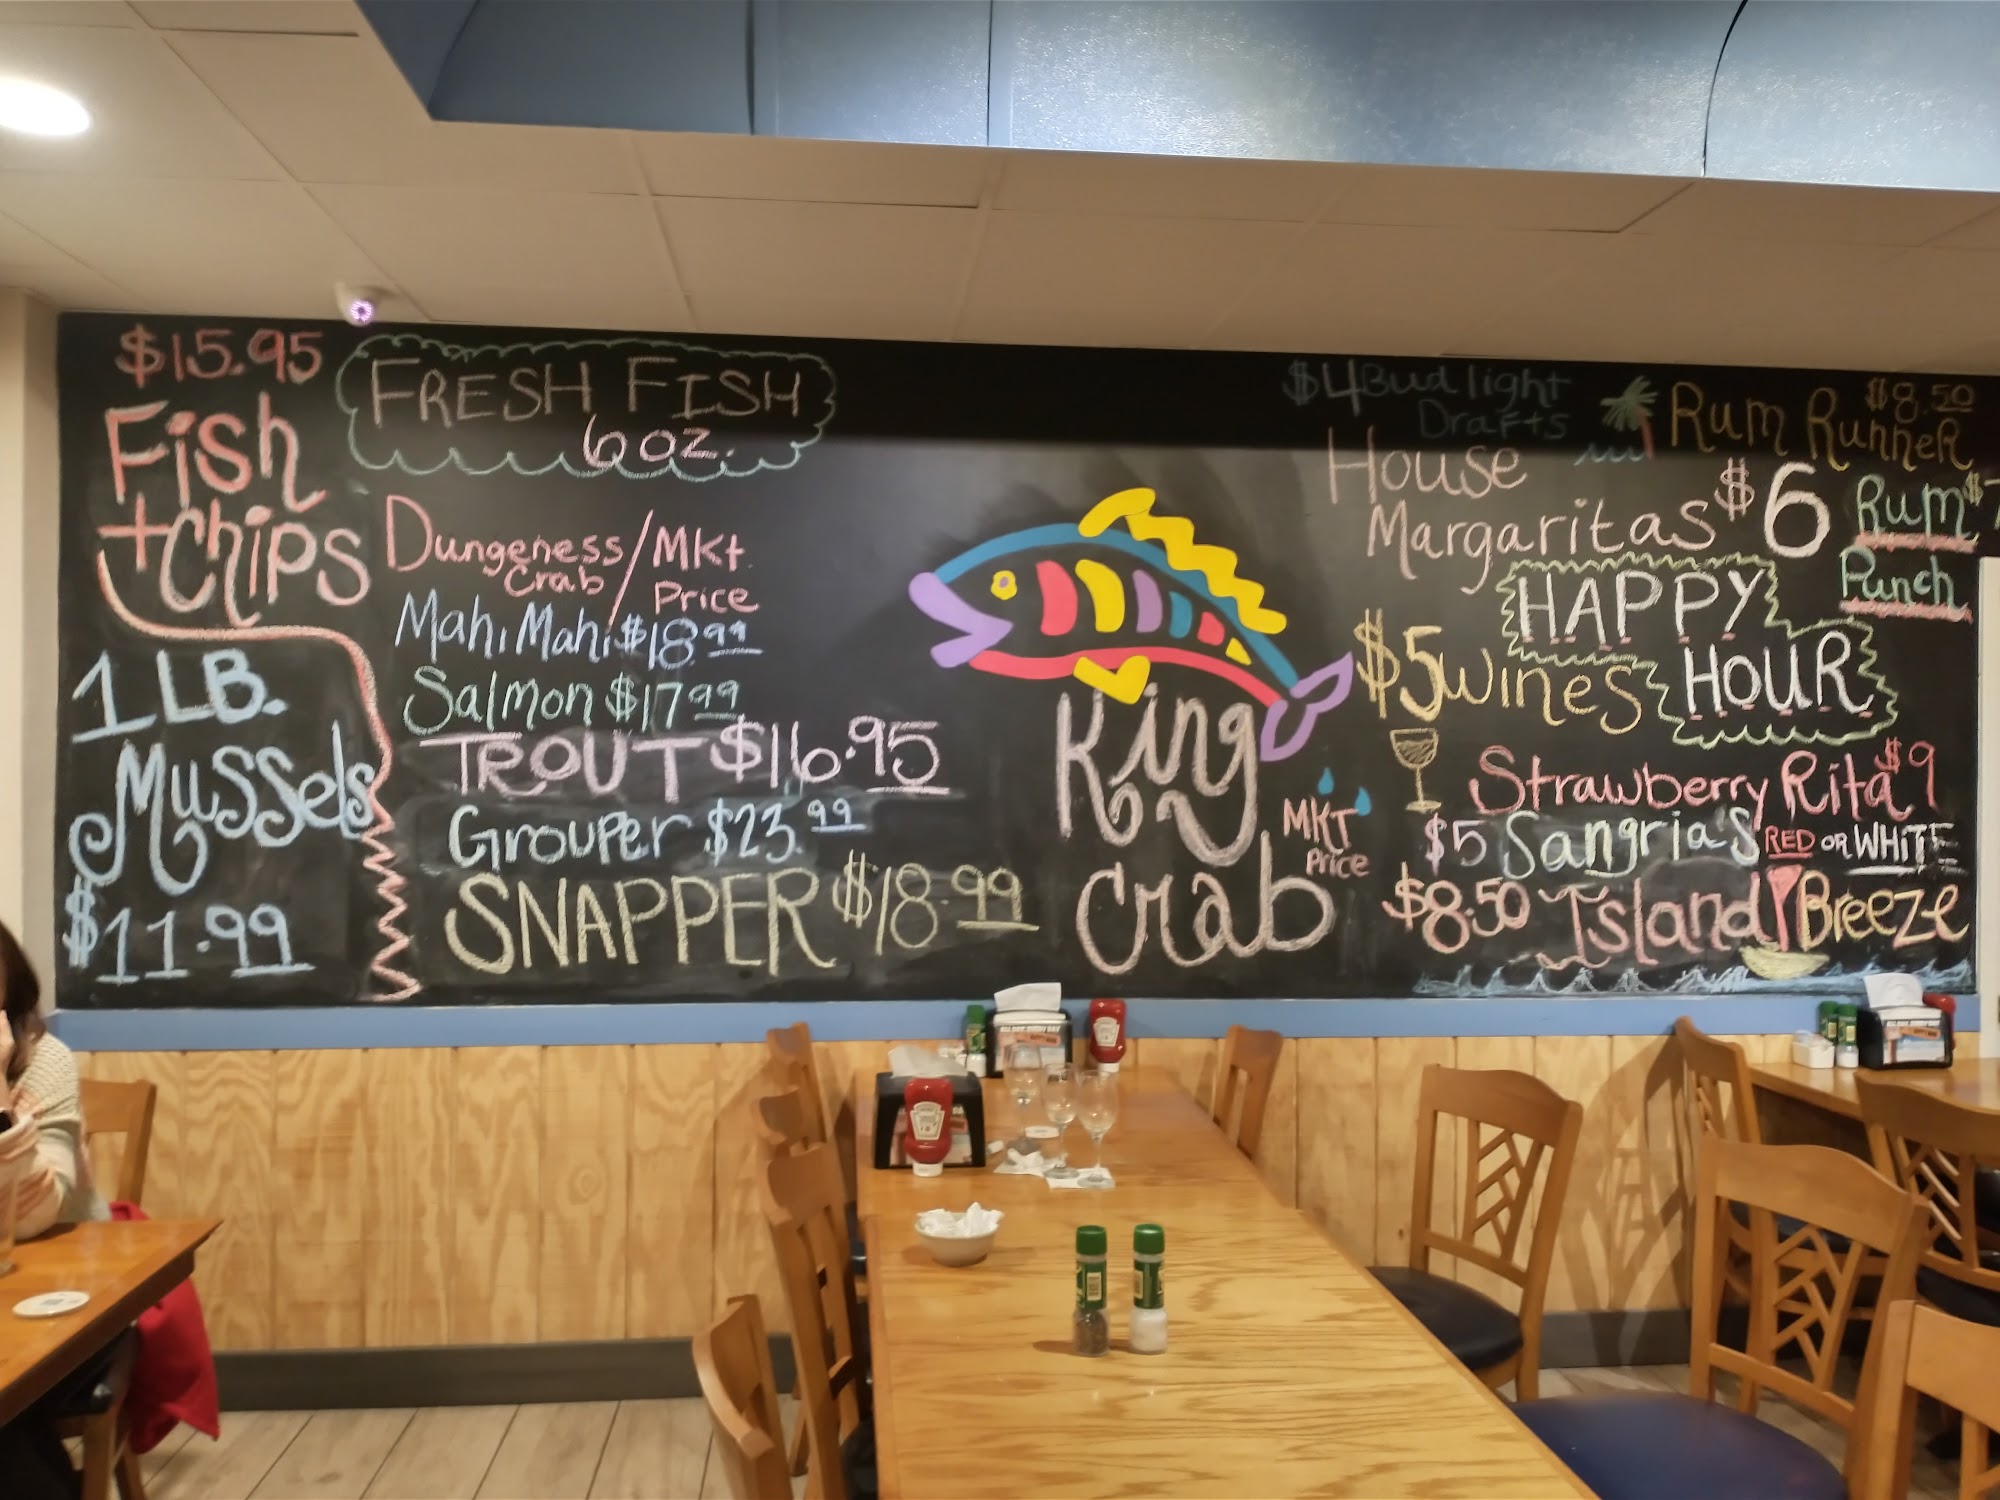 $15.95
Fish
+Chips
1 LB.
Mussels
$11.99
FRESH FISH
6 oz.
Dungeness / Mkt.
Crab Price
Mahi Mahi $18.99
Salmon $17.99
TROUT $16.95
Grouper $23.99
SNAPPER $18.99
King
Crab
MKT
Price
$4 Bud light
Drafts
Rum Runner $8.50
House
Margaritas $6
Rum $7
Punch
HAPPY
HOUR
$5 wines
Strawberry Rita $9
$5 Sangria's RED OR WHITE
$8.50 Island Breeze